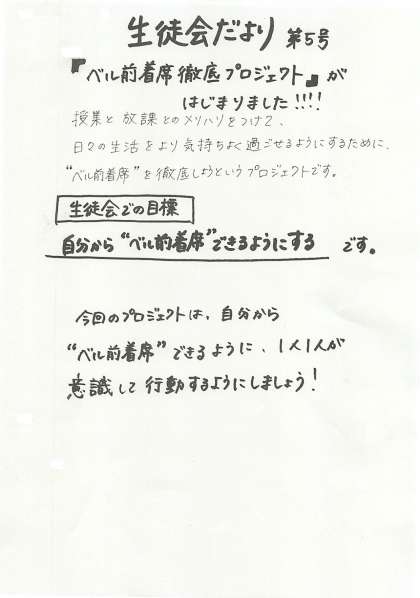 生徒会だより 第5号
『ベル前着席徹底プロジェクト』が
はじまりました!!!!
授業と放課とのメリハリをつけて、
日々の生活をより気持ちよく過ごせるようにするために、
“ベル前着席”を徹底しようというプロジェクトです。
生徒会での目標
自分から“ベル前着席”できるようにする です。
今回のプロジェクトは、自分から
“ベル前着席”できるように、1人1人が
意識して行動するようにしましょう!